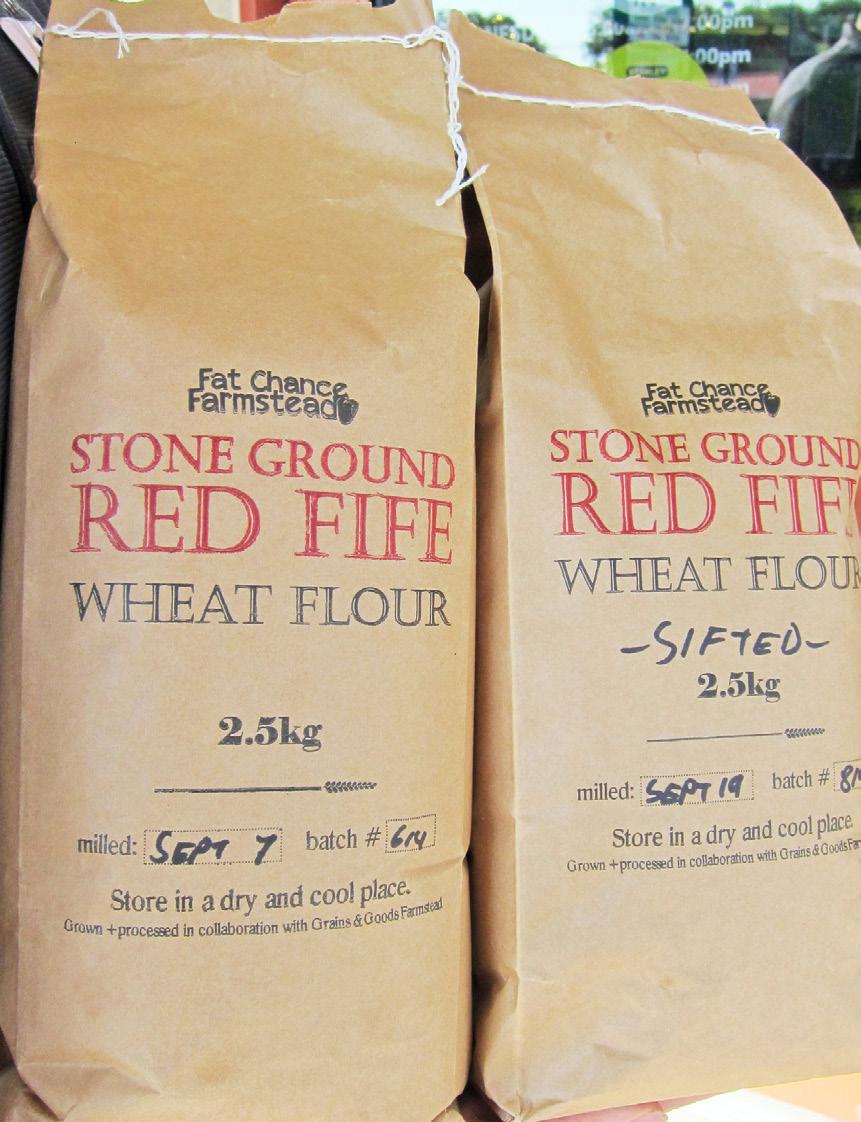 Fat Chance
Farmstead
STONE GROUND
RED FIFE
WHEAT FLOUR
2.5kg
milled: SEPT 7 batch # 6/14
Store in a dry and cool place.
Grown + processed in collaboration with Grains & Goods Farmstead
Fat Chance
Farmstead
STONE GROUND
RED FIF
WHEAT FLOUR
-SIFTED-
2.5kg
milled: SEPT 19 batch #
Store in a dry and cool place.
Grown + processed in collaboration with Grains & Goods
:00pm
:00pm